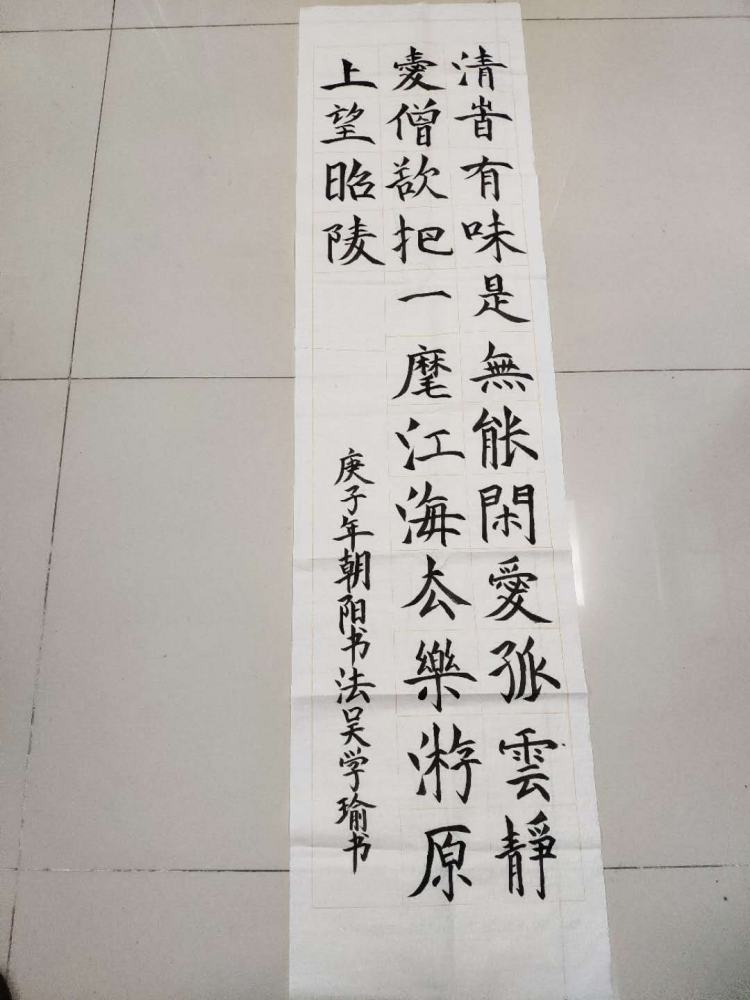 清旹有味是無能閑愛孤雲靜
愛僧欲把一麾江海厺樂游原
上望昭陵
庚子年朝阳书法吴学瑜书